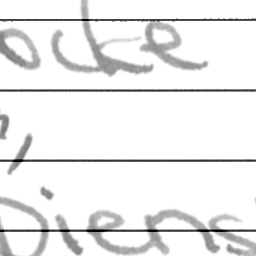 ocke
,
Diens